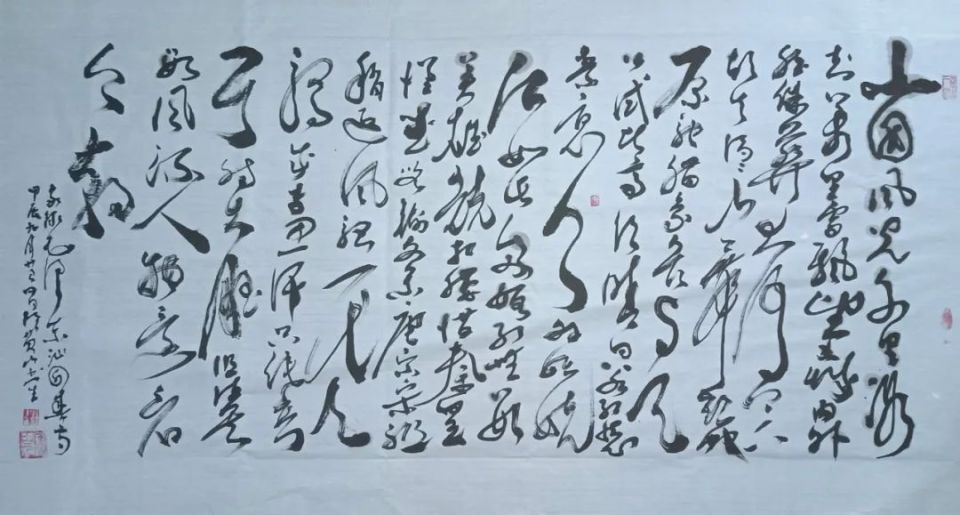 北國風光千里冰
封万里雪飘望长城内外
惟馀莽莽大河上下
顿失滔滔山舞银蛇
原驰蜡象欲与天
公试比高须晴日看红装
素裹分外妖娆
江山如此多娇引无数
英雄竞折腰惜秦皇
汉武略输文采唐宗宋祖
稍逊风骚一代天
骄成吉思汗只识弯
弓射大雕俱往矣
数风流人物还看
今朝
毛泽东沁园春雪
甲辰九月廿